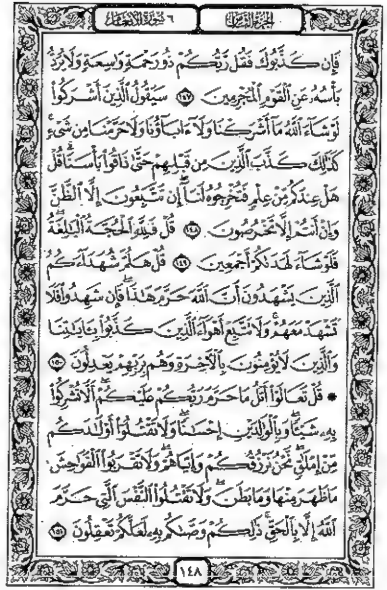 الجزء الثامن ٦ سورة الأنعام
فَإِن كَذَّبُوكَ فَقُل رَّبُّكُمْ ذُو رَحْمَةٍ وَٰسِعَةٍ وَلَا يُرَدُّ
بَأْسُهُۥ عَنِ ٱلْقَوْمِ ٱلْمُجْرِمِينَ ١٤٧ سَيَقُولُ ٱلَّذِينَ أَشْرَكُوا۟
لَوْ شَآءَ ٱللَّهُ مَآ أَشْرَكْنَا وَلَآ ءَابَآؤُنَا وَلَا حَرَّمْنَا مِن شَىْءٍۚ
كَذَٰلِكَ كَذَّبَ ٱلَّذِينَ مِن قَبْلِهِمْ حَتَّىٰ ذَاقُوا۟ بَأْسَنَاۗ قُلْ
هَلْ عِندَكُم مِّنْ عِلْمٍ فَتُخْرِجُوهُ لَنَآۖ إِن تَتَّبِعُونَ إِلَّا ٱلظَّنَّ
وَإِنْ أَنتُمْ إِلَّا تَخْرُصُونَ ١٤٨ قُلْ فَلِلَّهِ ٱلْحُجَّةُ ٱلْبَٰلِغَةُۖ
فَلَوْ شَآءَ لَهَدَىٰكُمْ أَجْمَعِينَ ١٤٩ قُلْ هَلُمَّ شُهَدَآءَكُمُ
ٱلَّذِينَ يَشْهَدُونَ أَنَّ ٱللَّهَ حَرَّمَ هَٰذَاۖ فَإِن شَهِدُوا۟ فَلَا
تَشْهَدْ مَعَهُمْۚ وَلَا تَتَّبِعْ أَهْوَآءَ ٱلَّذِينَ كَذَّبُوا۟ بِـَٔايَٰتِنَا
وَٱلَّذِينَ لَا يُؤْمِنُونَ بِٱلْـَٔاخِرَةِ وَهُم بِرَبِّهِمْ يَعْدِلُونَ ١٥٠
۞ قُلْ تَعَالَوْا۟ أَتْلُ مَا حَرَّمَ رَبُّكُمْ عَلَيْكُمْۖ أَلَّا تُشْرِكُوا۟
بِهِۦ شَيْـًٔاۖ وَبِٱلْوَٰلِدَيْنِ إِحْسَٰنًاۖ وَلَا تَقْتُلُوٓا۟ أَوْلَٰدَكُم
مِّنْ إِمْلَٰقٍۖ نَّحْنُ نَرْزُقُكُمْ وَإِيَّاهُمْۖ وَلَا تَقْرَبُوا۟ ٱلْفَوَٰحِشَ
مَا ظَهَرَ مِنْهَا وَمَا بَطَنَۖ وَلَا تَقْتُلُوا۟ ٱلنَّفْسَ ٱلَّتِى حَرَّمَ
ٱللَّهُ إِلَّا بِٱلْحَقِّۚ ذَٰلِكُمْ وَصَّىٰكُم بِهِۦ لَعَلَّكُمْ تَعْقِلُونَ ١٥١
١٤٨